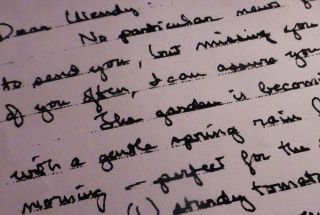 Dear Wendy:
No particular news
to send you, but missing you
of you often, I can assure you
The garden is becomi
with a gentle spring rain
morning - perfect for the
(1) sturdy tomat